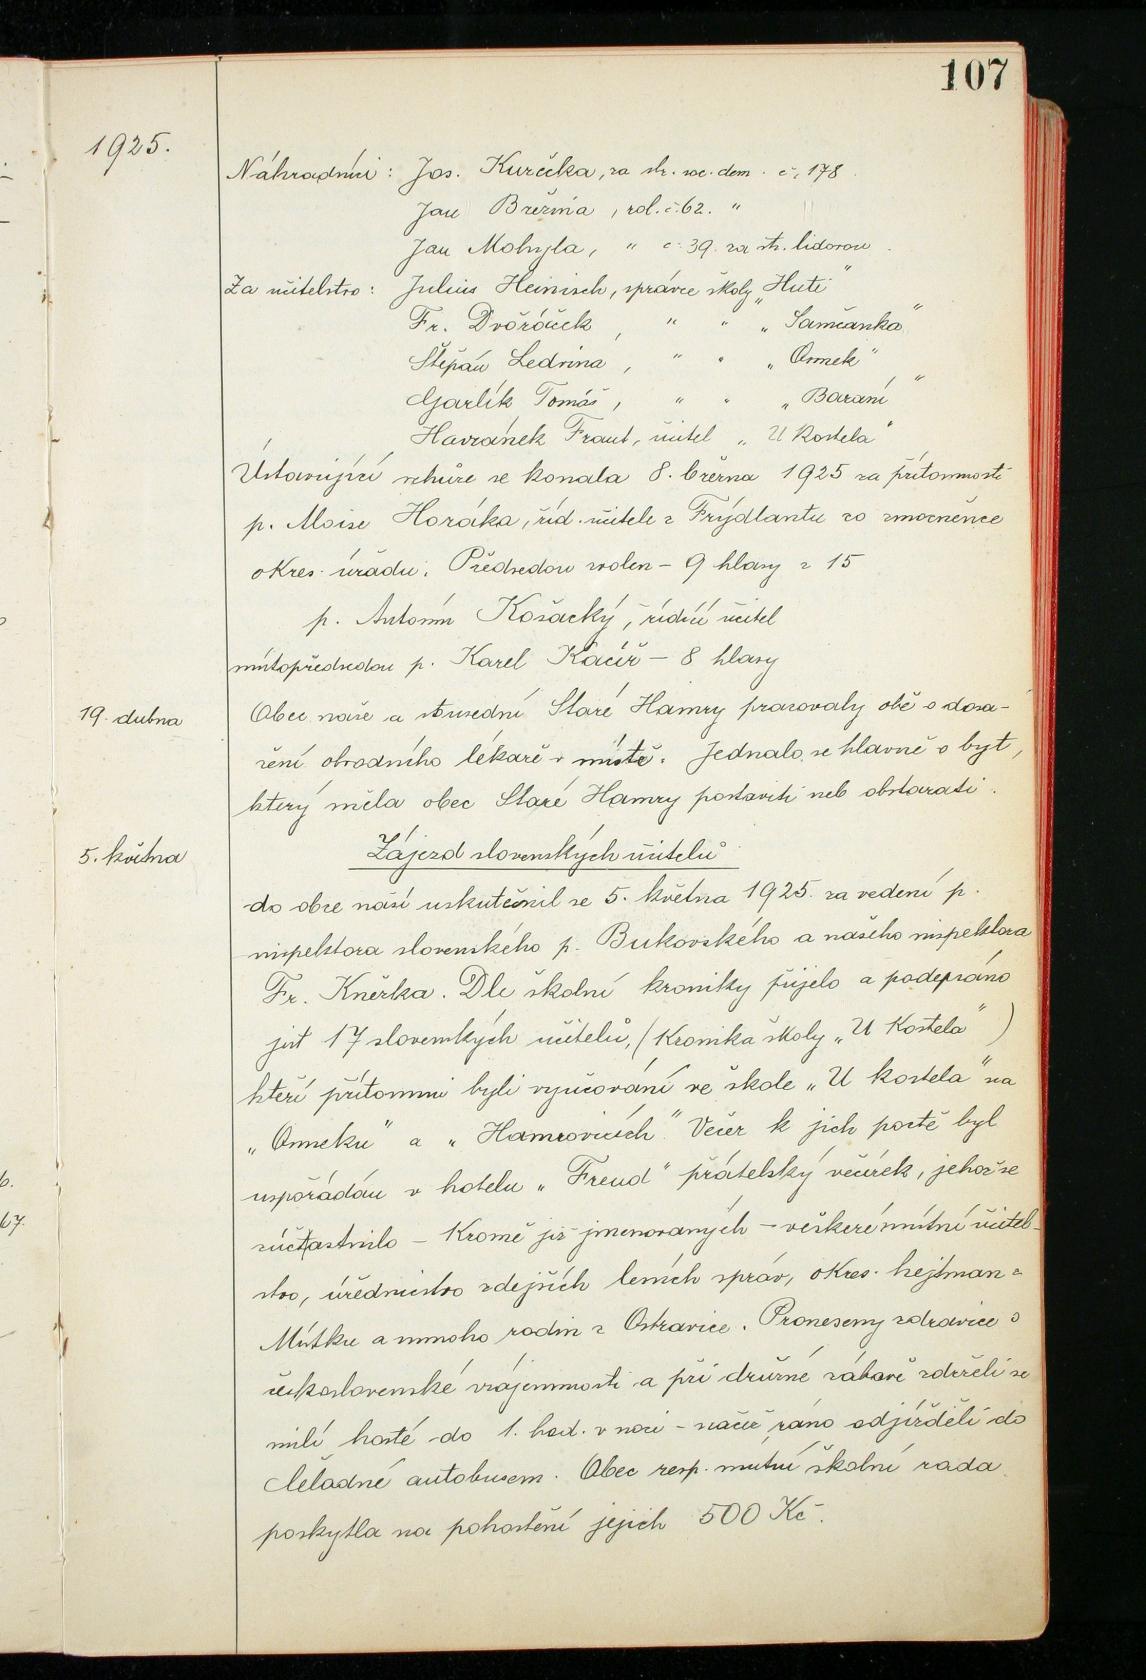 107
1925.
Náhradníci: Jos. Kurečka, za str. soc. dem. č. 178.
Jan Březina, rol. č. 62. "
Jan Mohyla, " č. 39. za str. lidovou.
Za učitelstvo: Julius Heinisch, správce školy „Hutě"
Fr. Dvořáček, " " „Samčanka"
Štěpán Ledvina, " " „Ormek"
Garlík Tomáš, " " „Baraní"
Havránek Frant, učitel „U kostela"
Ústavující schůze se konala 8. března 1925 za přítomnosti
p. Aloise Horáka, říd. učitele z Frýdlantu co zmocněnce
okres. úřadu. Předsedou zvolen – 9 hlasy z 15
p. Antonín Košacký, řídící učitel
místopředsedou p. Karel Kačíř – 8 hlasy
19. dubna
Obec naše a sousední Staré Hamry pracovaly obě o dosa-
žení obvodního lékaře v místě. Jednalo se hlavně o byt,
který měla obec Staré Hamry postaviti neb obstarati.
5. května
Zájezd slovenských učitelů
do obce naší uskutečnil se 5. května 1925. za vedení p.
inspektora slovenského p. Bukovského a našeho inspektora
Fr. Knězka. Dle školní kroniky přijelo a podepsáno
jest 17 slovenských učitelů, (Kronika školy „U Kostela")
kteří přítomni byli vyučování ve škole „U kostela" na
„Ormeku" a „Hamrovicích". Večer k jich poctě byl
uspořádán v hotelu „Freud" přátelský večírek, jehož se
súčastnilo – Kromě již jmenovaných – veškeré místní učitel-
stvo, úřednictvo zdejších lesních správ, okres. hejtman z
Místku a mnoho rodin z Ostravice. Proneseny zdravice o
československé vzájemnosti a při družné zábavě zdrželi se
milí hosté do 1. hod. v noci – načež ráno odjížděli do
Čeladné autobusem. Obec resp. místní školní rada
poskytla na pohostění jejich 500 Kč.